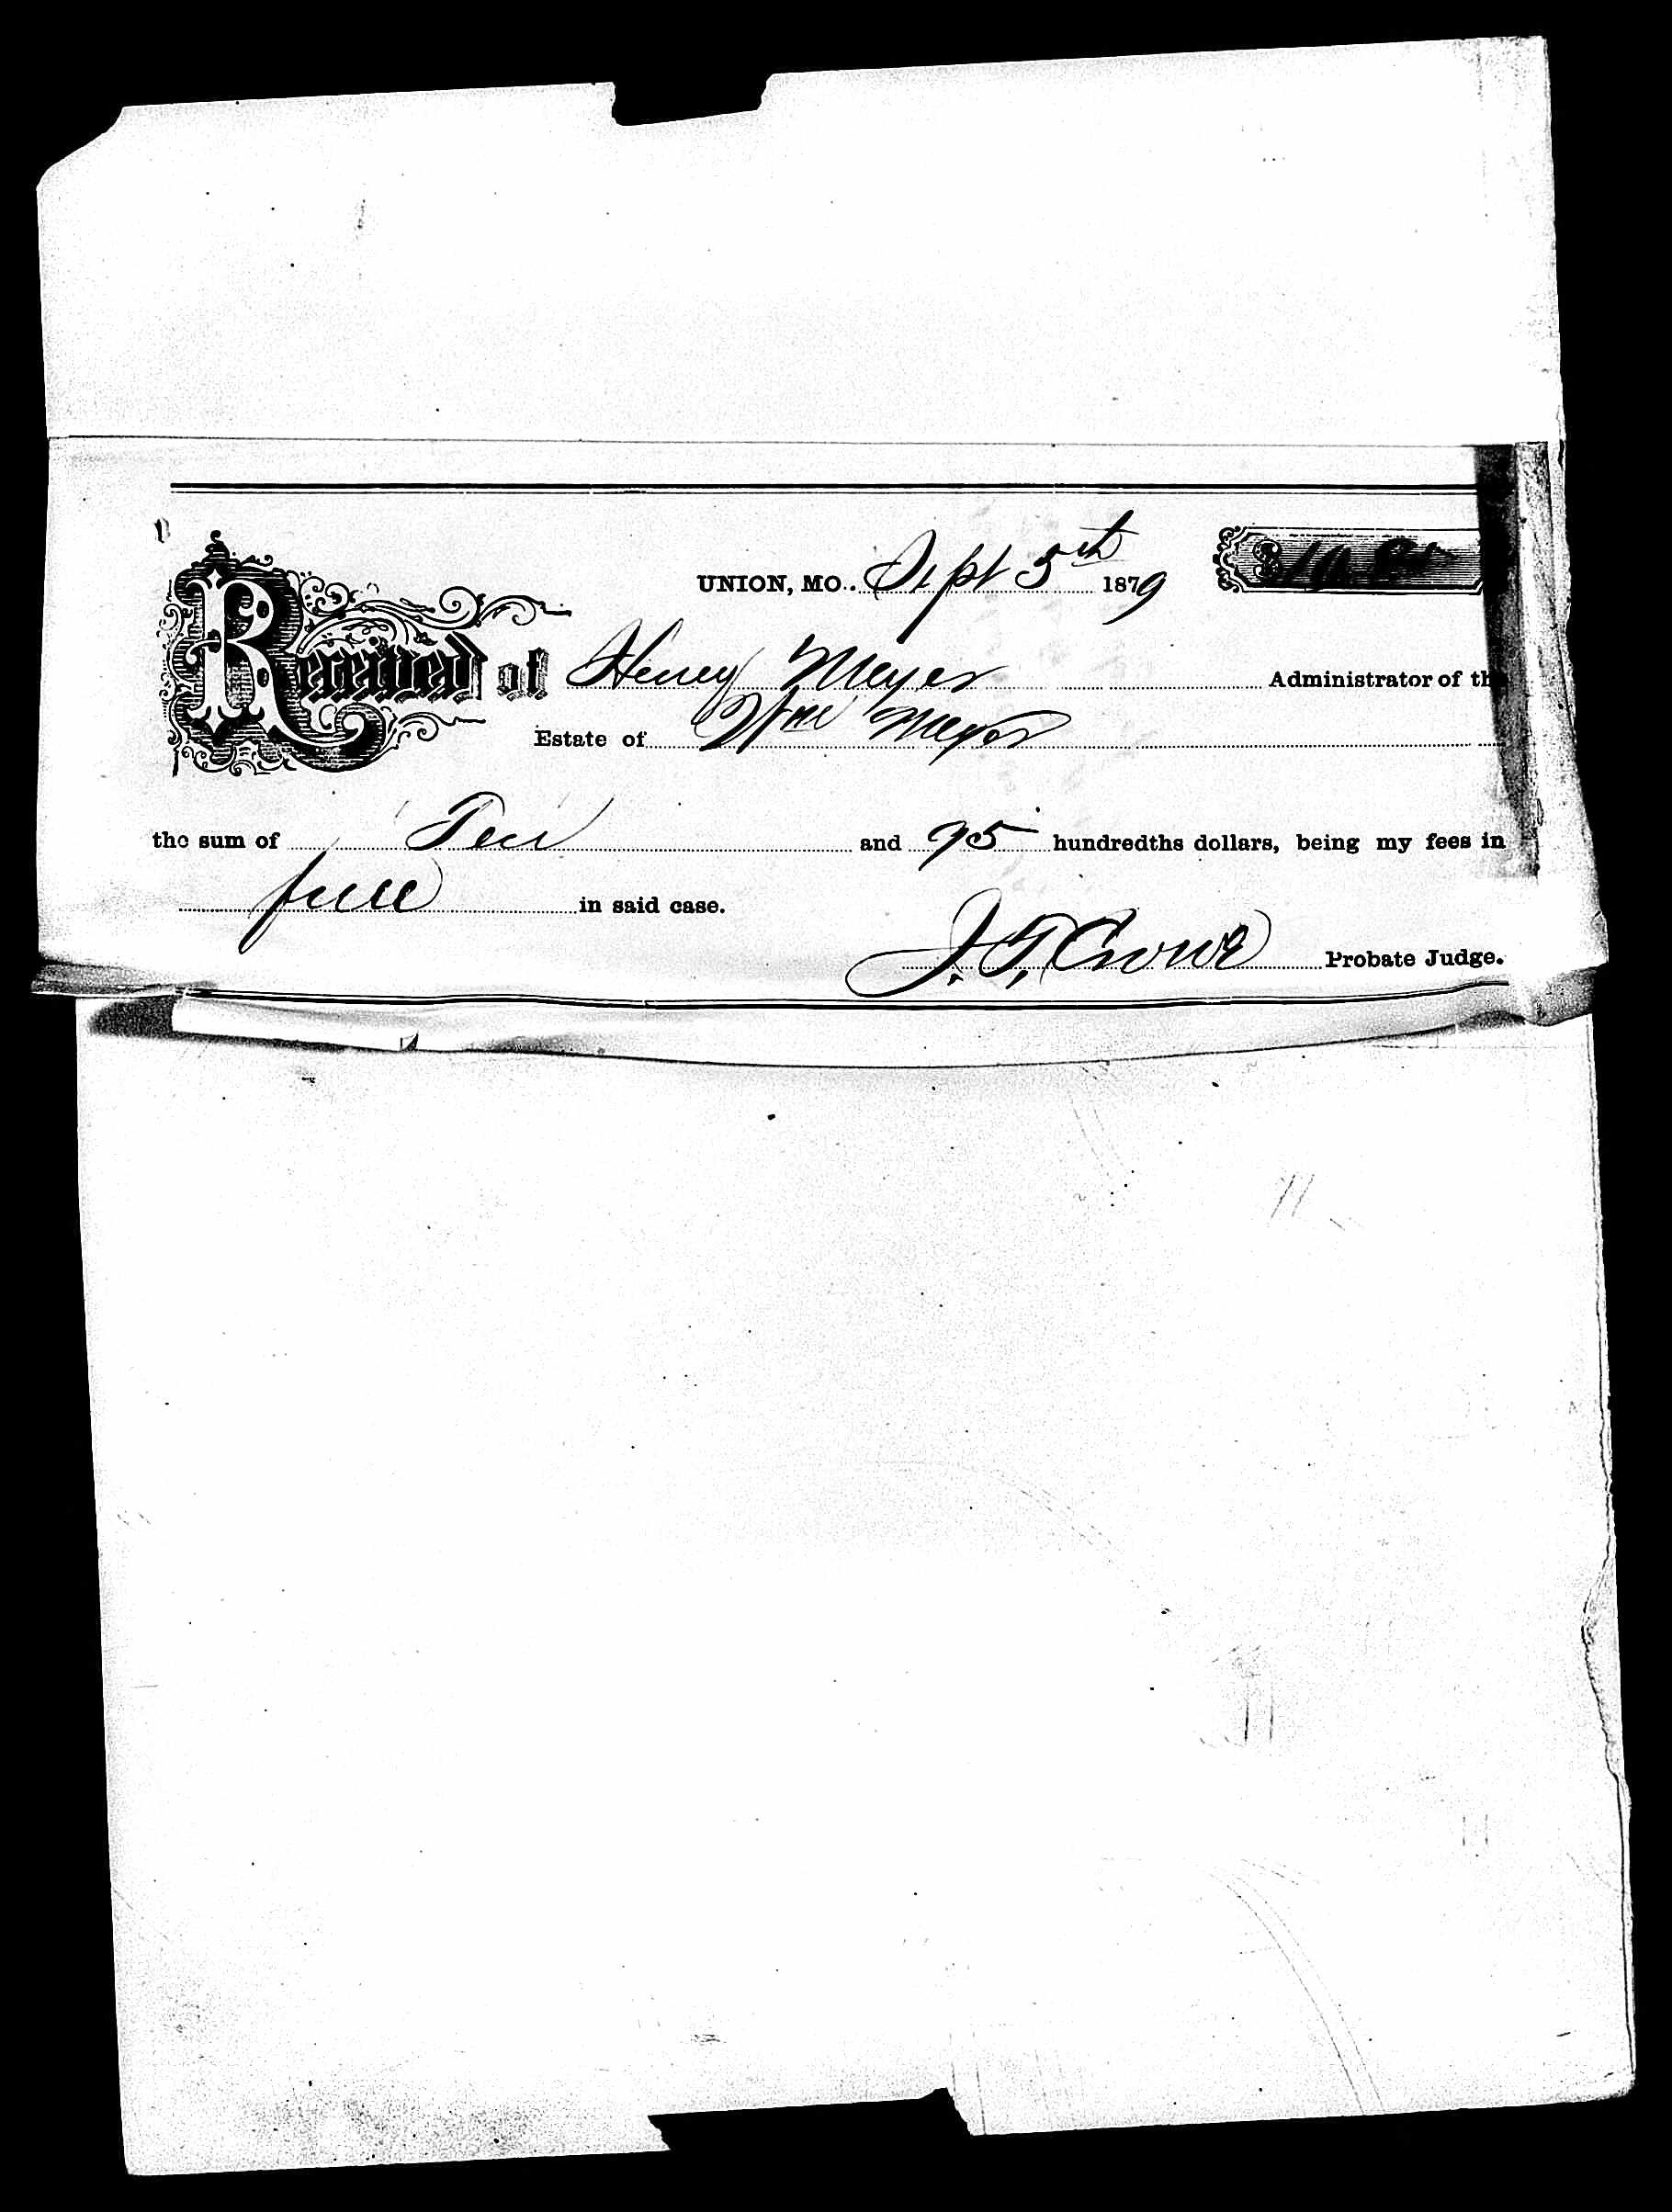 UNION, MO. Sept 5th 1879
Received of Henry Meyer Administrator of the
Estate of Wm Meyer
the sum of Ten and 95 hundredths dollars, being my fees in
full in said case.
J. T. Crowe Probate Judge.